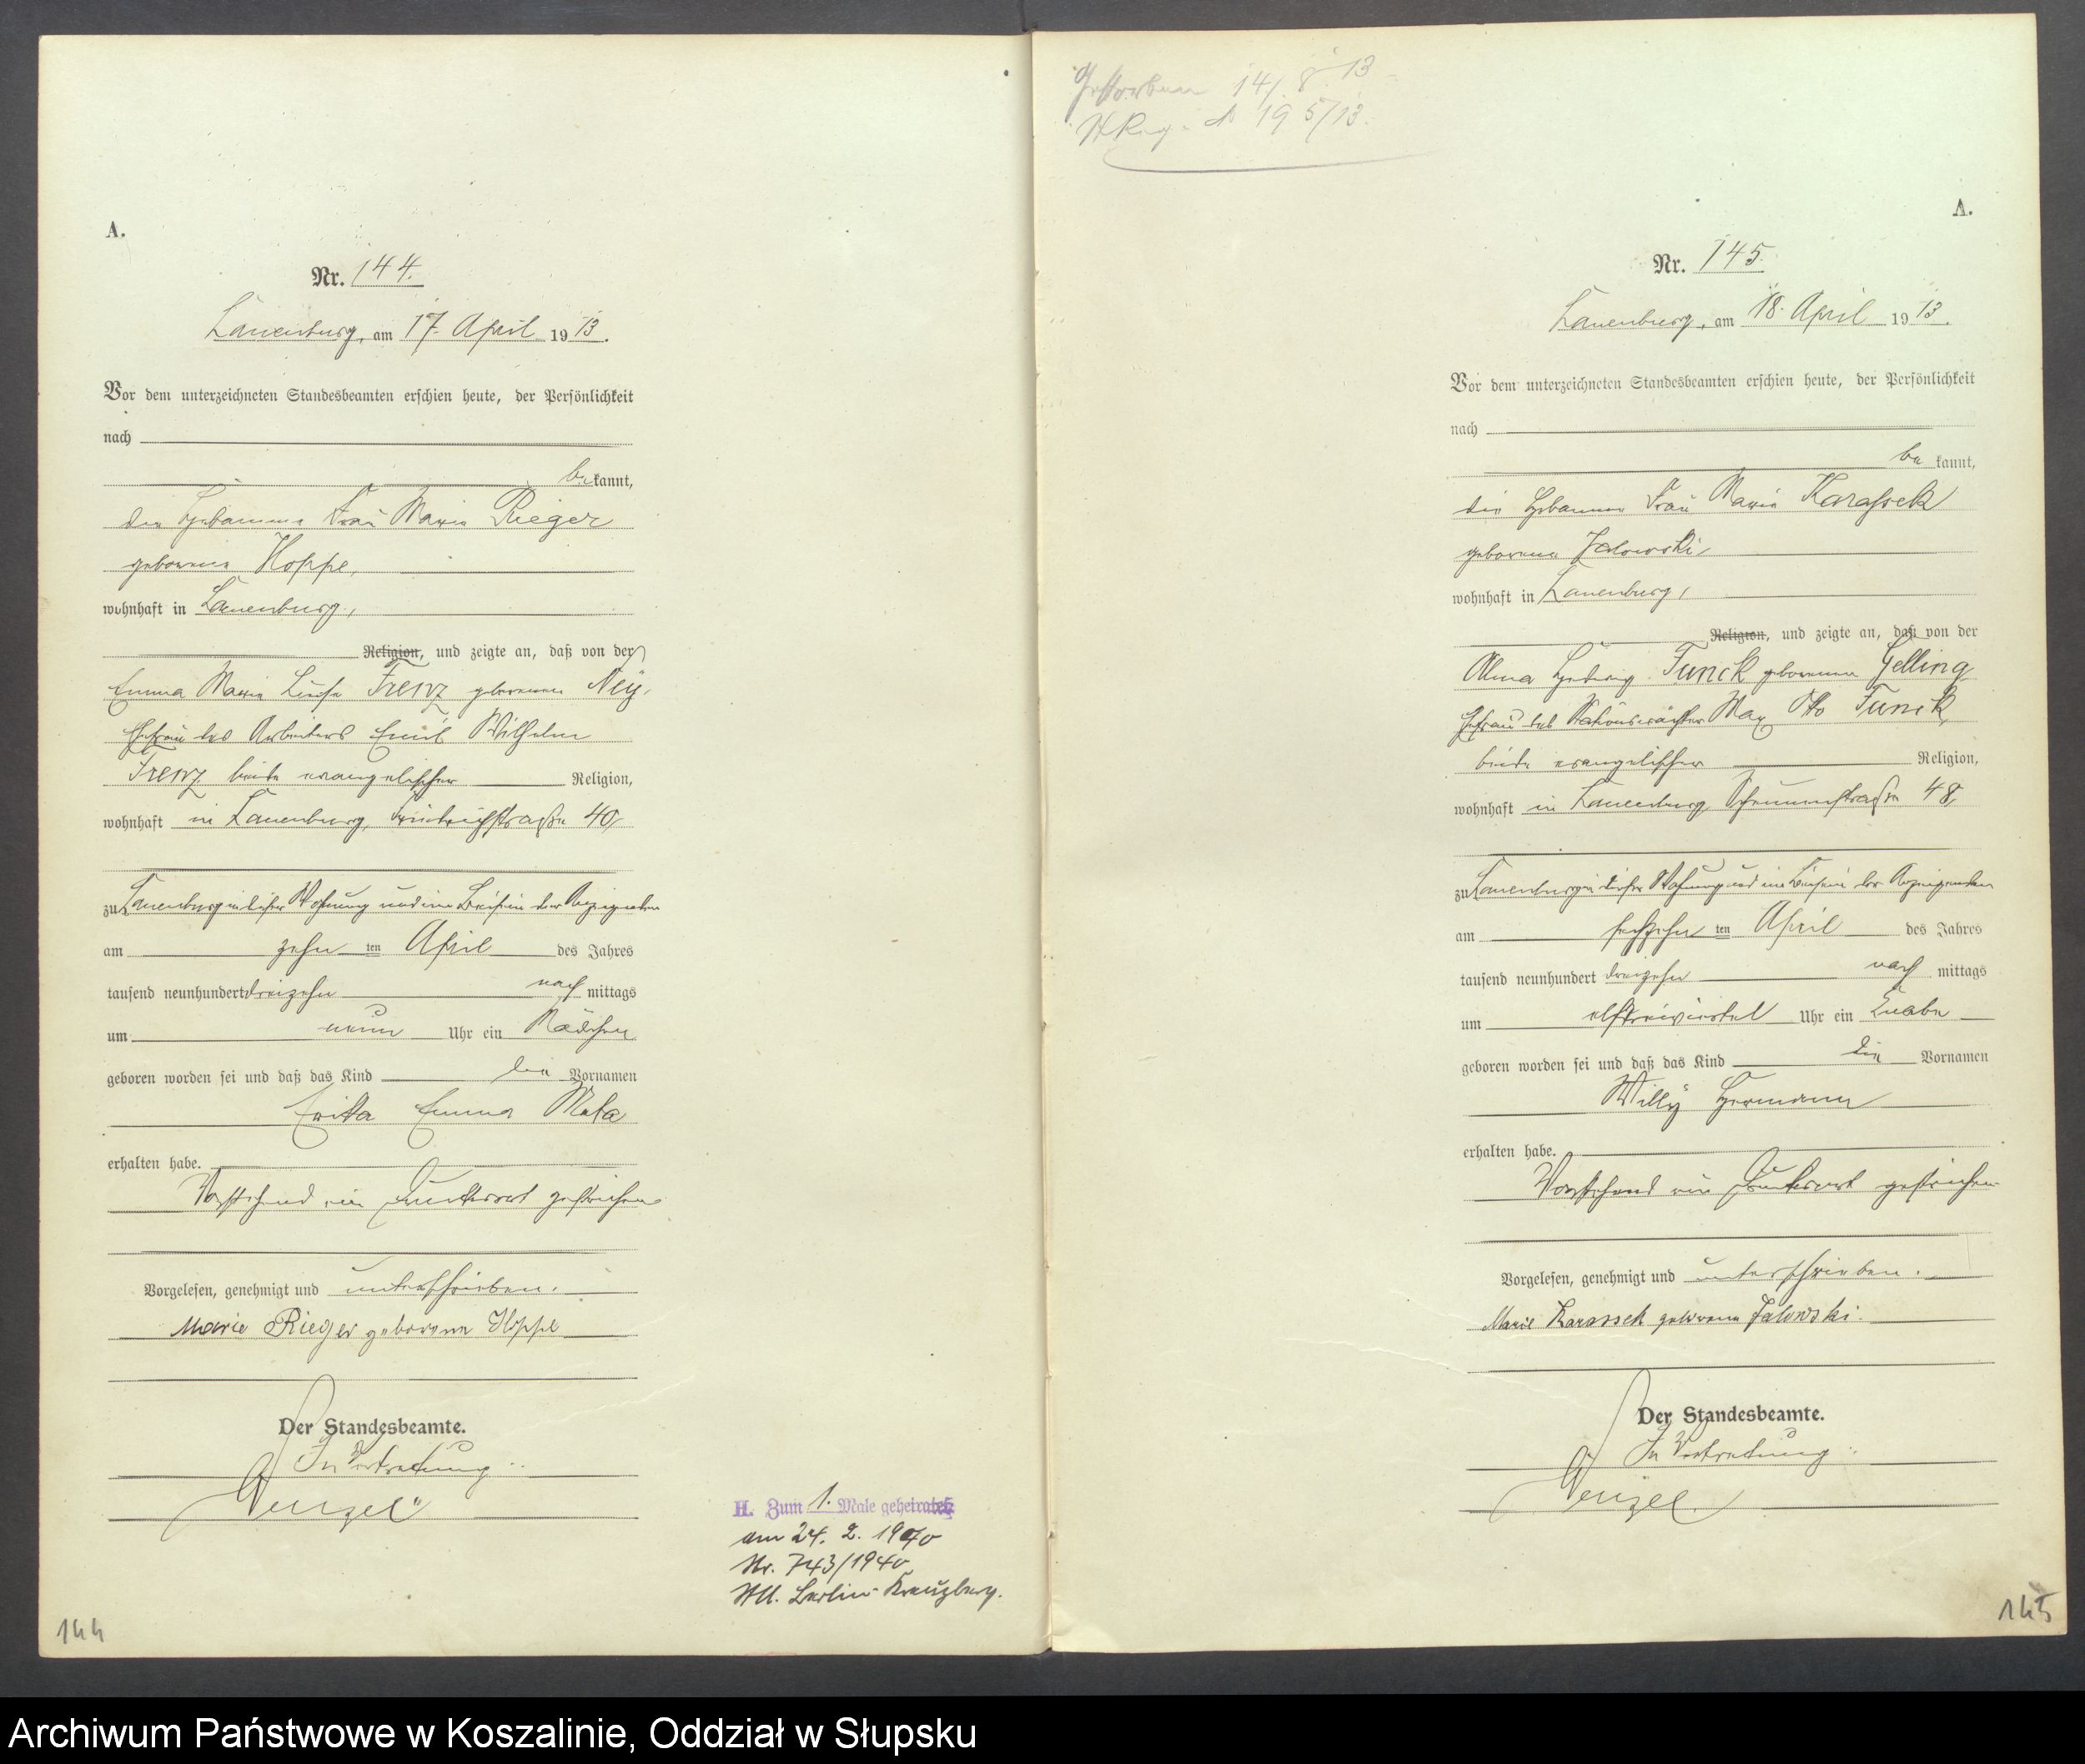 A.
Nr. 144.
Lauenburg, am 17. April 1913.
Vor dem unterzeichneten Standesbeamten erschien heute, der Persönlichkeit
nach
bekannt,
die Hebamme Frau Marie Rieger
geborene Hoppe,
wohnhaft in Lauenburg,
Religion, und zeigte an, daß von der
Emma Marie Luise Frenz geborenen Ney,
Ehefrau des Arbeiters Emil Wilhelm
Frenz beide evangelischer Religion,
wohnhaft in Lauenburg, Friedrichstraße 40,
zu Lauenburg in dieser Wohnung und im Beisein der Anzeigenden
am zehnten April des Jahres
tausend neunhundert dreizehn nachmittags
um neun Uhr ein Mädchen
geboren worden sei und daß das Kind die Vornamen
Eritta Emma Meta
erhalten habe.
Vorstehend ein Druckwort gestrichen
Vorgelesen, genehmigt und unterschrieben.
Marie Rieger geborene Hoppe
Der Standesbeamte.
In Vertretung.
Wenzel
H. Zum 1. Male geheiratet
am 24. 2. 1940
Nr. 743/1940
StA. Berlin-Kreuzberg.
144
Gestorben 14/8.13
St Reg. № 195/13.
A.
Nr. 145.
Lauenburg, am 18. April 1913.
Vor dem unterzeichneten Standesbeamten erschien heute, der Persönlichkeit
nach
bekannt,
die Hebamme Frau Marie Karassek
geborene Jalowski,
wohnhaft in Lauenburg,
Religion, und zeigte an, daß von der
Alma Hedwig Funck geborenen Gelling
Ehefrau des Max Otto Funck,
beide evangelischer Religion,
wohnhaft in Lauenburg, Scheunenstraße 48,
zu Lauenburg in dieser Wohnung und im Beisein der Anzeigenden
am sechzehnten April des Jahres
tausend neunhundert dreizehn nachmittags
um elfdreiviertel Uhr ein Knabe
geboren worden sei und daß das Kind die Vornamen
Willy Hermann
erhalten habe.
Vorstehend ein Druckwort gestrichen
Vorgelesen, genehmigt und unterschrieben.
Marie Karassek geborene Jalowski.
Der Standesbeamte.
In Vertretung.
Wenzel.
145
Archiwum Państwowe w Koszalinie, Oddział w Słupsku